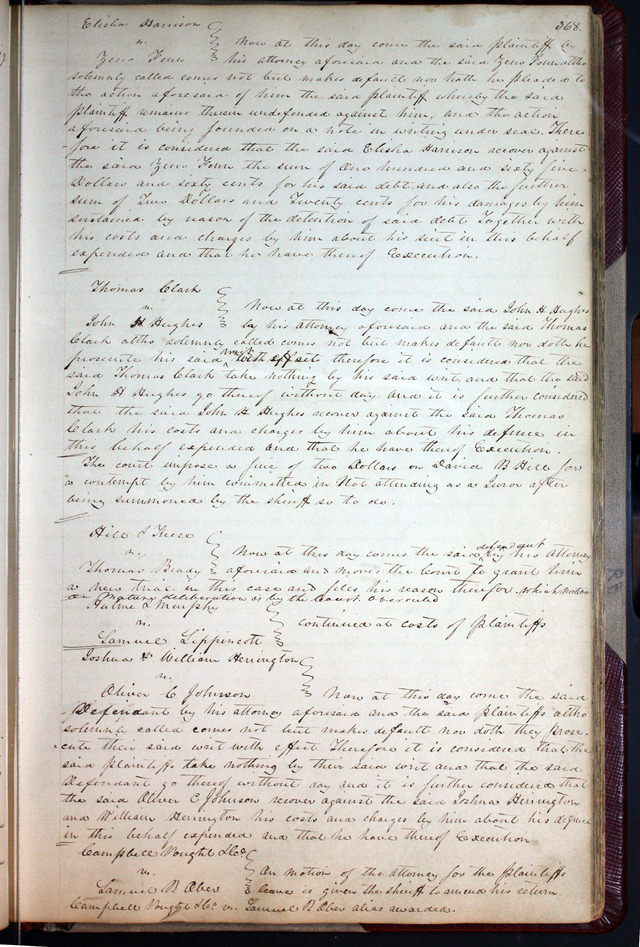 368.
Elisha Harrison
vs.
Zeno Fenn
Now at this day come the said plaintiff by
his attorney aforesaid and the said Zeno Fenn altho
solemnly called comes not but makes default nor hath he pleaded to
the action aforesaid of him the said plaintiff whereby the said
plaintiff remains therein undefended against him, and the action
aforesaid being founded on a note in writing under seal. There
fore it is considered that the said Elisha Harrison recover against
the said Zeno Fenn the sum of One hundred and sixty five
Dollars and sixty cents for his said debt and also the further
sum of Two Dollars and Twenty cents for his damages by him
sustained by reason of the detention of said debt Together with
his costs and charges by him about his suit in this behalf
expended and that he have thereof Execution.
Thomas Clark
vs.
John H Hughes
Now at this day come the said John H Hughes
by his attorney aforesaid and the said Thomas
Clark altho solemnly called comes not but makes default nor doth he
prosecute his said writ with effect therefore it is considered that the
said Thomas Clark take nothing by his said writ, and that the said
John H Hughes go thereof without day and it is further considered
that the said John H Hughes recover against the said Thomas
Clark his costs and charges by him about his defence in
this behalf expended and that he have thereof Execution.
The court impose a fine of two Dollars on David B Hill for
a contempt by him committed in Not attending as a Juror after
being summoned by the sheriff so to do.
Hill &
vs.
Thomas Brady
Now at this day comes the said defendant by his Attorney
aforesaid and moves the Court to grant him
a new trial in this case and files his reason therefor, which motion
on Mature deliberation is by the Court overruled
Hulme & Murphy
vs.
Samuel Lippincott
continued at costs of plaintiffs
Joshua & William Herrington
vs.
Oliver C Johnson
Now at this day come the said
Defendant by his attorney aforesaid and the said plaintiffs altho
solemnly called comes not but makes default nor doth they prose
cute their said writ with effect Therefore it is considered that the
said plaintiffs take nothing by their said writ and that the said
Defendant go thereof without day and it is further considered that
the said Oliver C Johnson recover against the said Joshua Herrington
and William Herrington his costs and charges by him about his defence
in this behalf expended and that he have thereof Execution
Campbell Vought & Co.
vs.
Samuel R Ober
On motion of the attorney for the plaintiffs
leave is given the sheriff to amend his return
Campbell Vought & Co. vs. Samuel R Ober alias awarded.